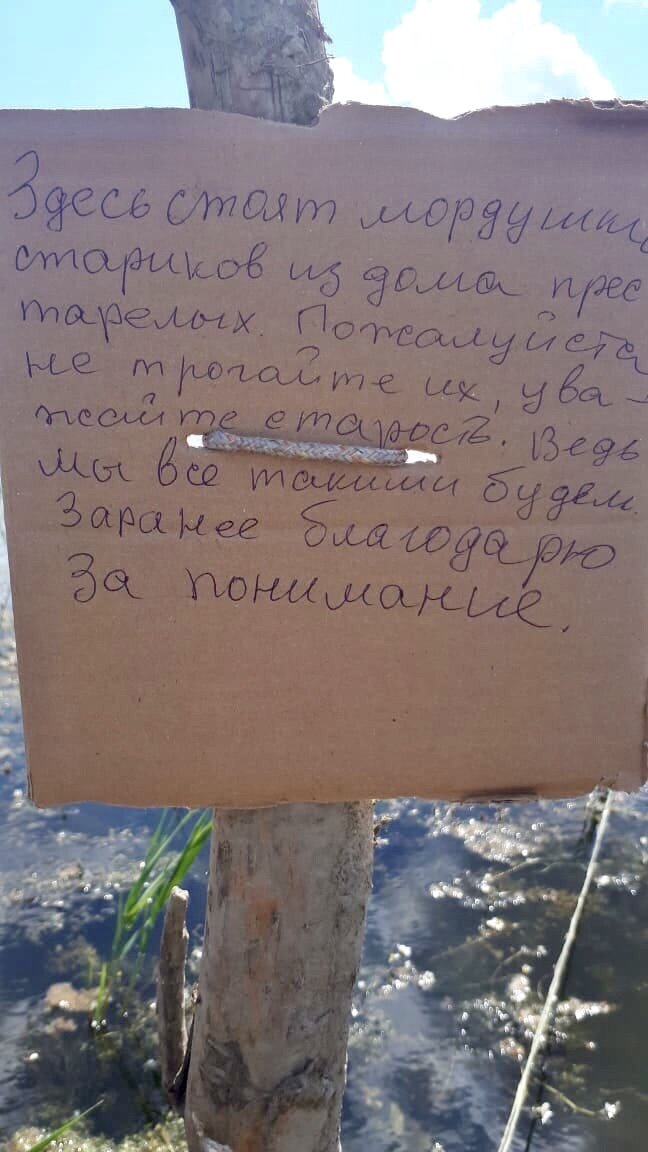 Здесь стоят мордушки
стариков из дома прес
тарелых. Пожалуйста
не трогайте их, ува-
жайте старость. Ведь
мы все такими будем.
Заранее благодарю
За понимание.